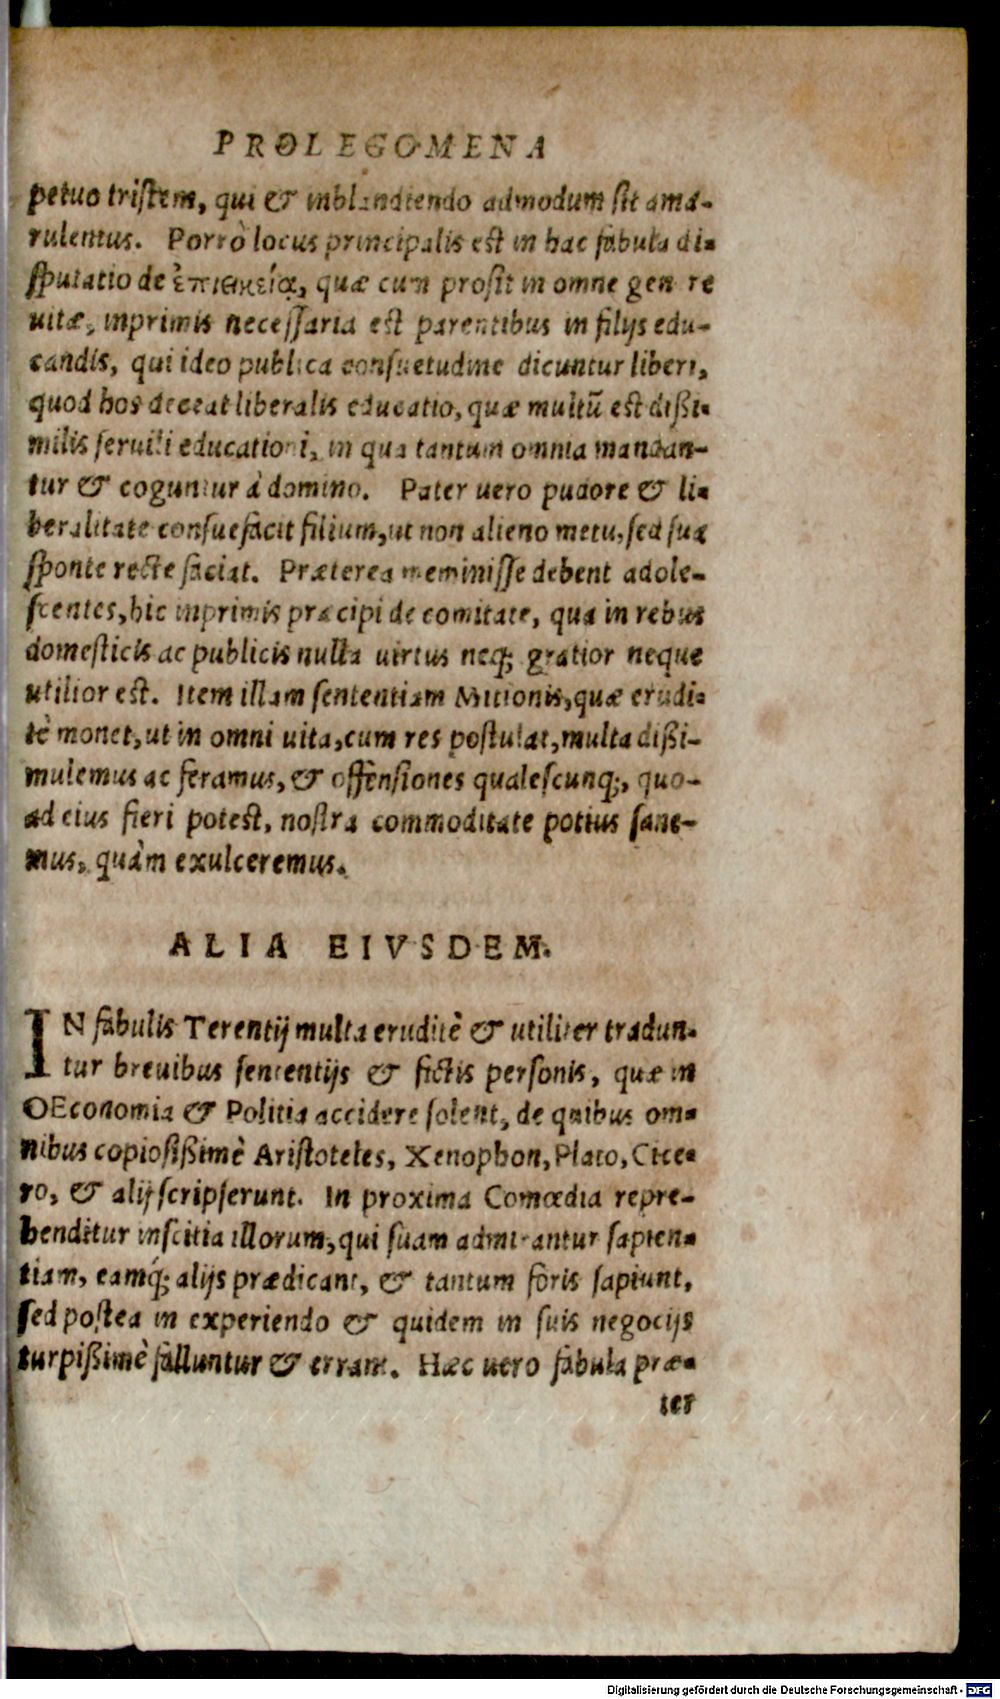 PROLEGOMENA
petuo tristem, qui & inblandiendo admodum sit ama-
rulentus. Porrò locus principalis est in hac fabula di-
sputatio de ἐπιεικείᾳ, quæ cum prosit in omne genere
uitæ, inprimis necessaria est parentibus in filijs edu-
candis, qui ideo publica consuetudine dicuntur liberi,
quod hos deceat liberalis educatio, quæ multũ est dißi-
milis seruili educationi, in qua tantum omnia mandan-
tur & coguntur à domino. Pater uero pudore & li-
beralitate consuefacit filium, ut non alieno metu, sed sua
sponte recte faciat. Præterea meminisse debent adole-
scentes, hic inprimis præcipi de comitate, qua in rebus
domesticis ac publicis nulla uirtus neq; gratior neque
utilior est. Item illam sententiam Mitionis, quæ erudi-
tè monet, ut in omni uita, cum res postulat, multa dißi-
mulemus ac feramus, & offensiones qualescunq;, quo-
ad eius fieri potest, nostra commoditate potius sane-
mus, quàm exulceremus.
ALIA EIVSDEM.
IN fabulis Terentij multa eruditè & utiliter tradun-
tur breuibus sententijs & fictis personis, quæ in
OEconomia & Politia accidere solent, de quibus om-
nibus copiosißimè Aristoteles, Xenophon, Plato, Cice-
ro, & alij scripserunt. In proxima Comœdia repre-
henditur inscitia illorum, qui suam admirantur sapien-
tiam, eamq; alijs prædicant, & tantum foris sapiunt,
sed postea in experiendo & quidem in suis negocijs
turpißimè falluntur & errant. Hæc uero fabula præ-
ter
Digitalisierung gefördert durch die Deutsche Forschungsgemeinschaft - DFG